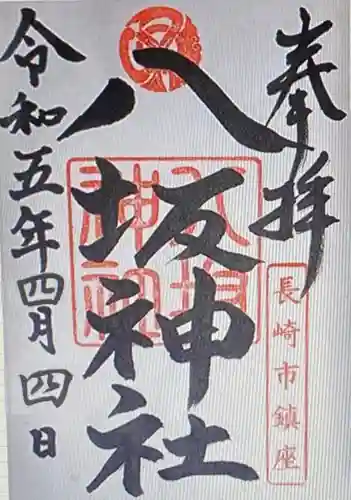 奉拝
長崎市鎮座
八坂神社
八坂
神社
令和五年四月四日